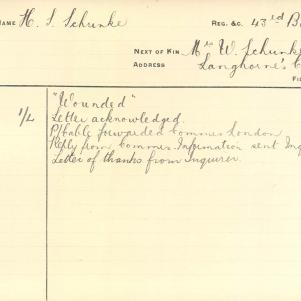 NAME H. S. Schunke
REG. &C. 43rd B
NEXT OF KIN Mrs W. Schunke
ADDRESS Langhorne's C
FI
1/L
"Wounded"
Letter acknowledged.
P/Cable forwarded Commrs London
Reply from Commrs. Information sent Inq
Letter of thanks from Inquirer.